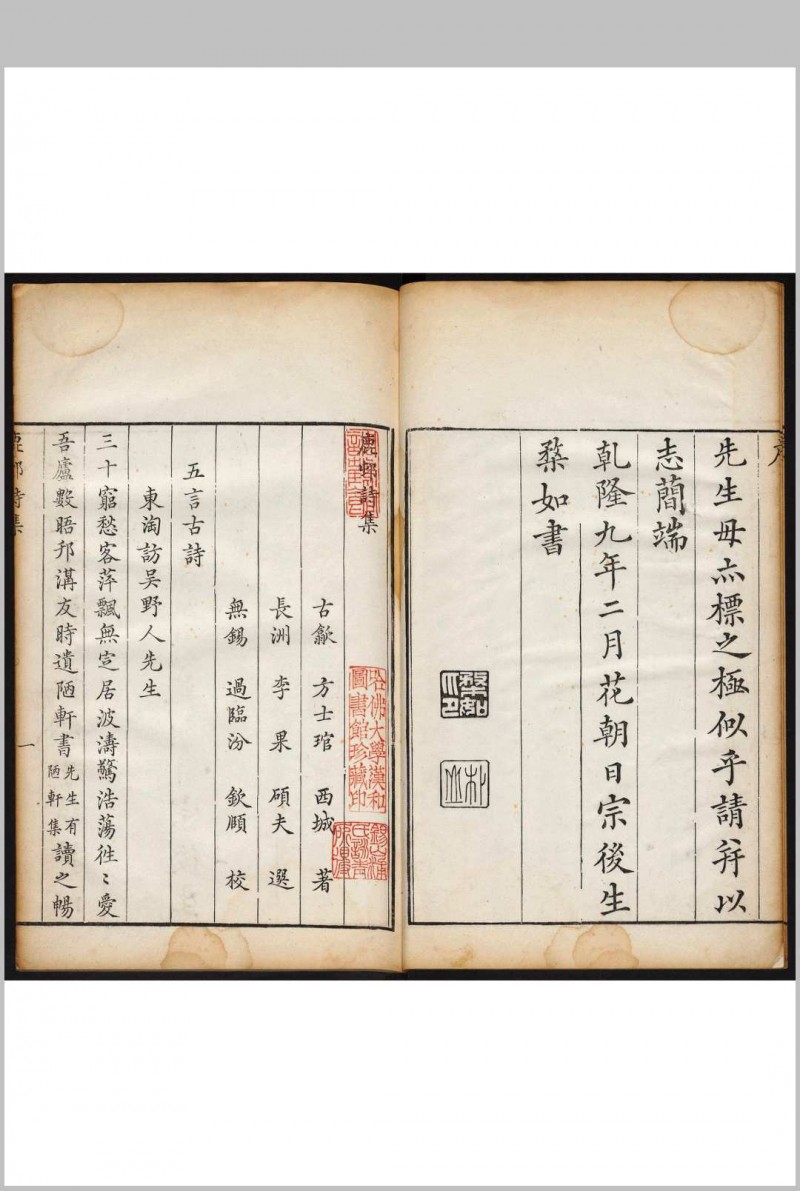 先生毋亦標之極似乎請弁以
志簡端
乾隆九年二月花朝日宗後生
棻如書
鹿邨詩集
古歙 方士琯 西城 著
長洲 李果 碩夫 選
無錫 過臨汾 欽頤 校
哈佛大學漢和
圖書館珍藏印
五言古詩
東淘訪吳野人先生
三十窮愁客萍飄無定居波濤驚浩蕩徃〻愛
吾廬數晤邘溝友時遺陋軒書先生有陋軒集讀之暢
鹿邨詩集
一